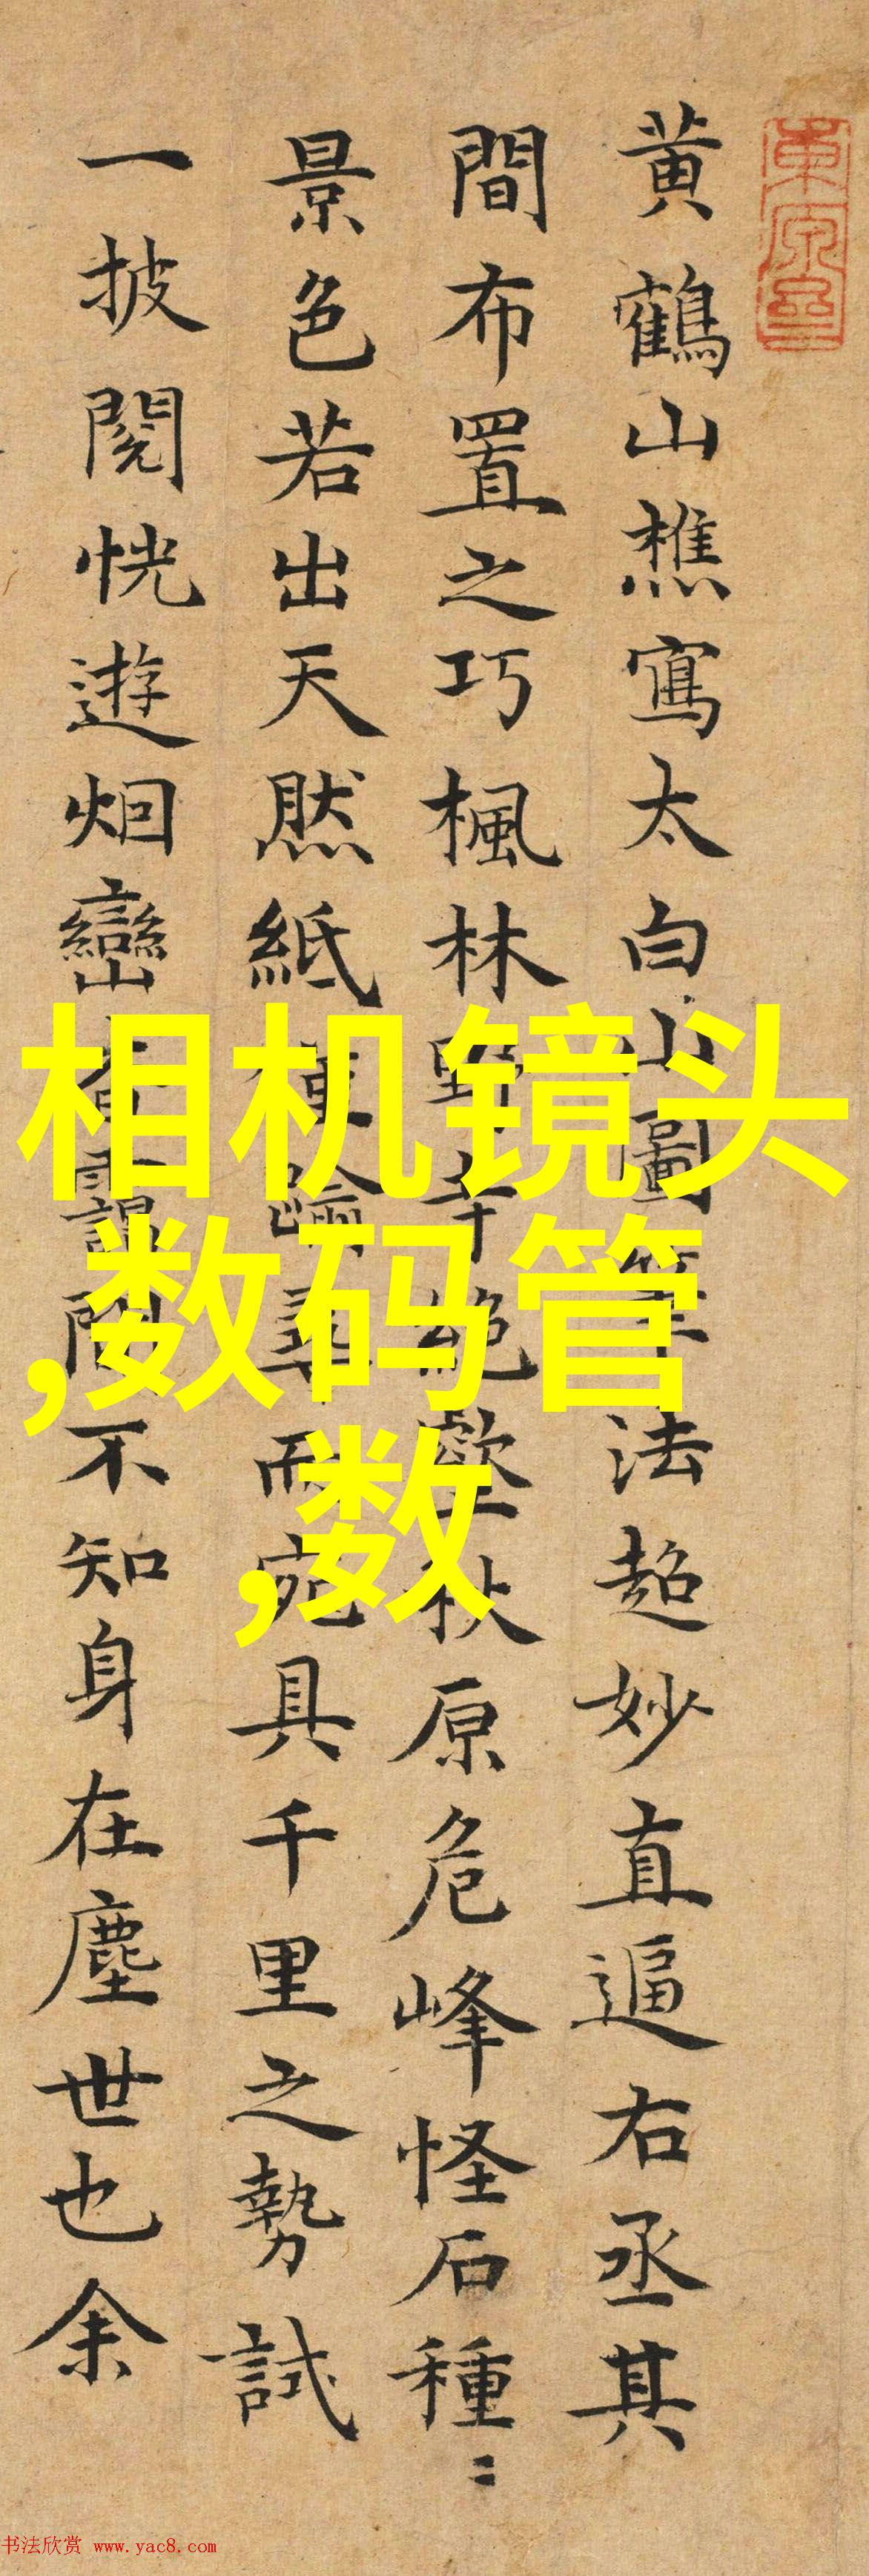 黄鶴山樵寫太白山圖筆法超妙直逼右丞其
間布置之巧楓林野寺絕壑秋原危峰怪石種：
景色若出天然紙墨喻尋而宛具千里之勢試
一披閱恍遊烟巒杳靄間不知身在塵世也余
相机镜头
,数码管
,数
书法欣赏 www.yac8.com